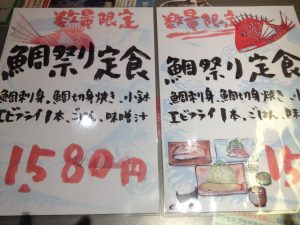 数量限定
鯛祭り定食
鯛刺身、鯛切身焼き、小鉢
エビフライ1本、ごはん、味噌汁
1,580円
数量限定
鯛祭り定食
鯛刺身、鯛切身焼き、小鉢
エビフライ1本、ごはん、味噌汁
15